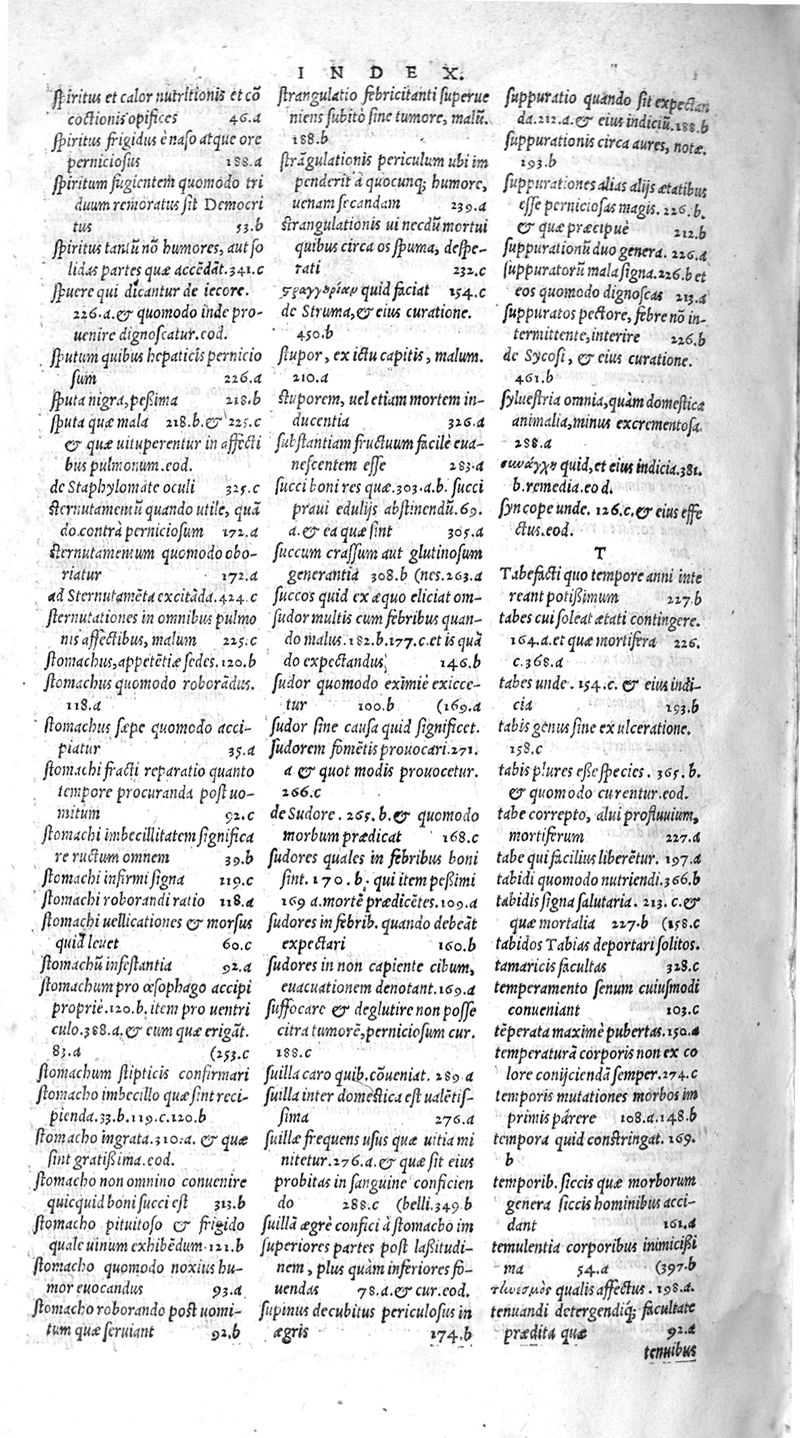 INDEX.
spiritus et calor nutritionis et cō
coctionis opifices 46.a
spiritus frigidus è naso atque ore
perniciosus 188.a
spiritum fugientem quomodo tri
duum remoratus sit Democri
tus 53.b
spiritus tantū nō humores, aut so
lidas partes quæ accēdāt.341.c
spuere qui dicantur de iecore.
226.a.& quomodo inde pro-
uenire dignoscatur.eod.
sputum quibus hepaticis pernicio
sum 226.a
sputa nigra, peßima 218.b
sputa quæ mala 218.b.& 225.c
& quæ uituperentur in affecti
bus pulmonum.eod.
de Staphylomate oculi 325.c
sternutamentū quando utile, quā
do contrà perniciosum 172.a
sternutamentum quomodo obo-
riatur 172.a
ad Sternutamēta excitāda.424.c
sternutationes in omnibus pulmo
nis affectibus, malum 225.c
stomachus, appetētiæ sedes.120.b
stomachus quomodo roborādus.
118.a
stomachus sæpe quomodo acci-
piatur 35.a
stomachi fracti reparatio quanto
tempore procuranda post uo-
mitum 92.c
stomachi imbecillitatem significa
re ructum omnem 39.b
stomachi infirmi signa 119.c
stomachi roborandi ratio 118.a
stomachi uellicationes & morsus
quid leuet 60.c
stomachū infestantia 92.a
stomachum pro œsophago accipi
propriè.120.b.item pro uentri
culo.388.a.& eum quæ erigāt.
83.a (253.c
stomachum stipticis confirmari
stomacho imbecillo quæ sint reci-
pienda.33.b.119.c.120.b
stomacho ingrata.310.a. & quæ
sint gratißima.eod.
stomacho non omnino conuenire
quicquid boni succi est 313.b
stomacho pituitoso & frigido
quale uinum exhibēdum.121.b
stomacho quomodo noxius hu-
mor euocandus 93.a
stomacho roborando post uomi-
tum quæ seruiant 92.b
strangulatio febricitanti superue
niens subitò sine tumore, malū.
188.b
strāgulationis periculum ubi im
penderit à quocunq; humore,
uenam secandam 239.a
strangulationis ui necdū mortui
quibus circa os spuma, despe-
rati 232.c
στραγγουρίαν quid faciat 154.c
de Struma,& eius curatione.
450.b
stupor, ex ictu capitis, malum.
210.a
stuporem, uel etiam mortem in-
ducentia 326.a
substantiam fructuum facilè eua-
nescentem esse 283.a
succi boni res quæ.303.a.b. succi
praui edulijs abstinendū.69.
a.& ea quæ sint 305.a
succum crassum aut glutinosum
generantia 308.b (nes.263.a
succos quid ex æquo eliciat om-
sudor multis cum febribus quan-
do malus.182.b.177.c.et is quā
do expectandus 146.b
sudor quomodo eximiè exicce-
tur 100.b (169.a
sudor sine causa quid significet.
sudorem fomētis prouocari.271.
a & quot modis prouocetur.
266.c
de Sudore.265.b.& quomodo
morbum prædicat 168.c
sudores quales in febribus boni
sint.170.b. qui item peßimi
169 a.mortē prædicētes.109.a
sudores in febrib. quando debeāt
expectari 160.b
sudores in non capiente cibum,
euacuationem denotant.169.a
suffocare & deglutire non posse
citra tumorē, perniciosum cur.
188.c
suilla caro quib.cōueniat. 289.a
suilla inter domestica est ualētis-
sima 276.a
suillæ frequens usus quæ uitia mi
nitetur.276.a.& quæ sit eius
probitas in sanguine conficien
do 288.c (belli.349.b
suillā ægrè confici à stomacho im
superiores partes post laßitudi-
nem, plus quàm inferiores fo-
uendas 78.a.& cur.eod.
supinus decubitus periculosus in
ægris 174.b
suppuratio quando sit expectan
da.212.a.& eius indiciū.188.b
suppurationis circa aures, notæ.
193.b
suppurationes alias alijs ætatibus
esse perniciosas magis.226.b.
& quæ præcipuè 212.b
suppurationū duo genera. 226.a
suppuratorū mala signa.226.b et
eos quomodo dignoscas 213.a
suppuratos pectore, febre nō in-
termittente, interire 226.b
de Sycosi, & eius curatione.
461.b
syluestria omnia, quàm domestica
animalia, minus excrementosa.
288.a
συνάγχη quid, et eius indicia.381.
b.remedia.eod.
syncope unde. 126.c.& eius effe
ctus.eod.
T
Tabefacti quo tempore anni inte
reant potißimum 227.b
tabes cui soleat ætati contingere.
164.a.et quæ mortifera 226.
c.368.a
tabes unde.154.c. & eius indi-
cia 193.b
tabis genus sine exulceratione.
158.c
tabis plures esse species. 365.b.
& quomodo curentur.eod.
tabe correpto, alui profluuium,
mortiferum 227.a
tabe qui facilius liberētur. 197.a
tabidi quomodo nutriendi.366.b
tabidis signa salutaria. 213.c.&
quæ mortalia 227.b (158.c
tabidos Tabias deportari solitos.
tamaricis facultas 328.c
temperamento senum cuiusmodi
conueniant 103.c
tēperata maximè pubertas.150.a
temperaturā corporis non ex co
lore conijciendā semper.274.c
temporis mutationes morbos im
primis parere 108.a.148.b
tempora quid constringat. 169.
b
temporib. siccis quæ morborum
genera siccis hominibus acci-
dant 161.a
temulentia corporibus inimicißi
ma 54.a (397.b
τεινεσμὸς qualis affectus.198.a.
tenuandi detergendiq; facultate
prædita quæ 92.a
tenuibus